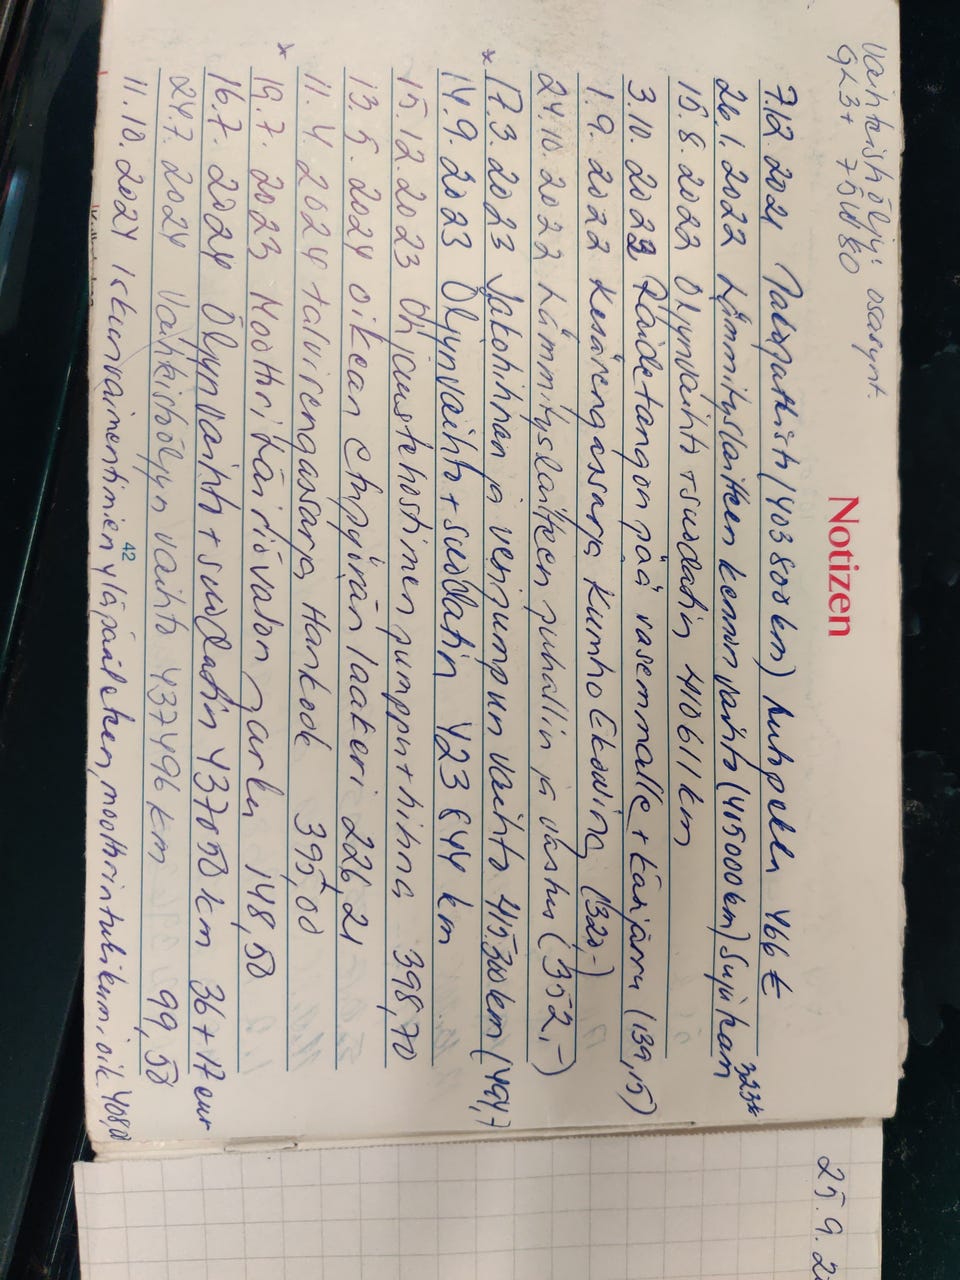 Vaihteistoöljy: osasynt.
GL3+ 75W80
Notizen
7.12.2021 (403800 km) 466 €
26.1.2022 Lämmityslaitteen kennon vaihto (405000km) 323€
15.8.2022 Öljynvaihto + suodatin 410611 km
3.10.2022 Raidetangon pää vasemmalle + (139,15)
1.9.2022 Kesärengassarja Kumho Ecowing (320,-)
24.10.2022 Lämmityslaitteen puhallin ja vastus (352,-)
* 17.3.2023 Jakohihnan ja vesipumpun vaihto 415300km (494,7
14.9.2023 Öljynvaihto + suodatin 423644 km
15.12.2023 Ohjaustehostimen pumppu + hihna 398,70
13.5.2024 oikean etupyörän laakeri 226,21
11.4.2024 talvirengassarja Hankook 395,00
* 19.7.2023 Moottori 148,50
16.7.2024 Öljynvaihto + suodatin 437050 km 36+17 eur
24.7.2024 Vaihteistoöljyn vaihto 437496 km 99,50
11.10.2024 Iskunvaimentimien yläpäälaaken, moottorintukikumi oik. 408,0
42
25.9.2